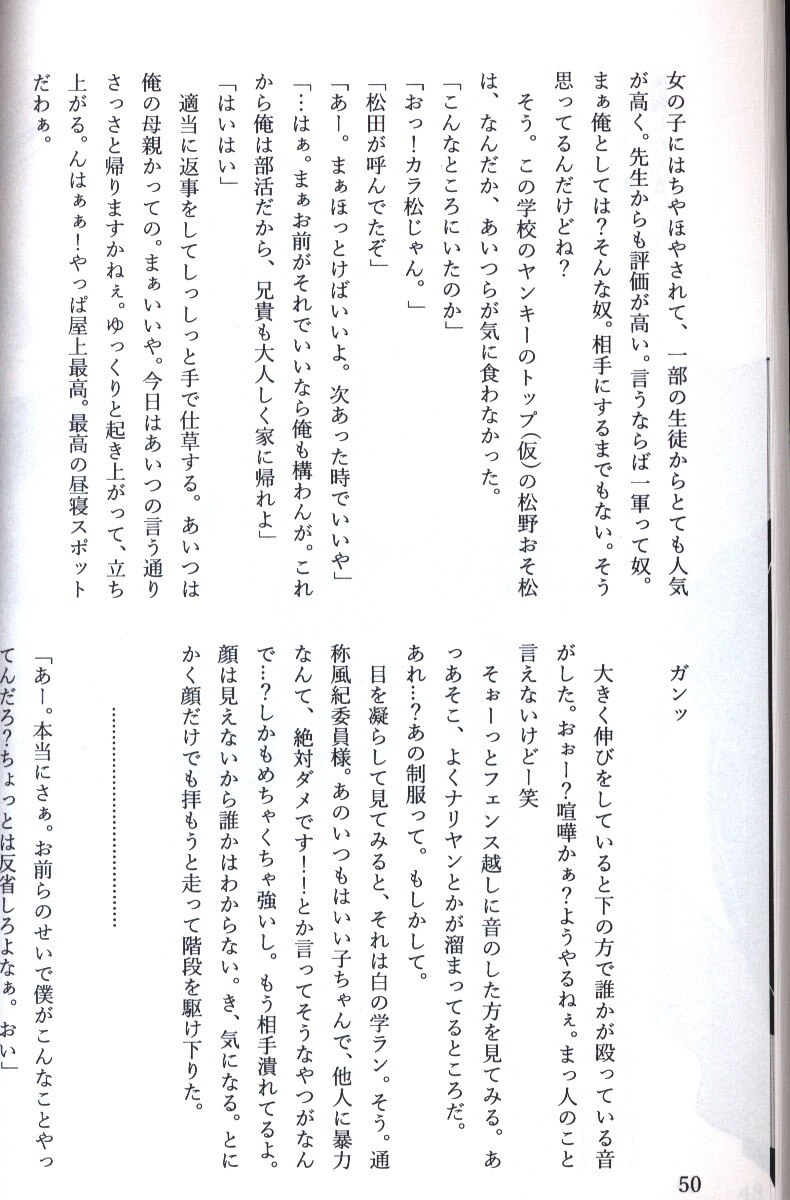 女の子にはちやほやされて、一部の生徒からとても人気
が高く。先生からも評価が高い。言うならば一軍って奴。
まぁ俺としては？そんな奴。相手にするまでもない。そう
思ってるんだけどね？
そう。この学校のヤンキーのトップ（仮）の松野おそ松
は、なんだか、あいつらが気に食わなかった。
「こんなところにいたのか」
「おっ！カラ松じゃん。」
「松田が呼んでたぞ」
「あー。まぁほっとけばいいよ。次あった時でいいや」
「…はぁ。まぁお前がそれでいいなら俺も構わんが。これ
から俺は部活だから、兄貴も大人しく家に帰れよ」
「はいはい」
適当に返事をしてしっしっと手で仕草する。あいつは
俺の母親かっての。まぁいいや。今日はあいつの言う通り
さっさと帰りますかねぇ。ゆっくりと起き上がって、立ち
上がる。んはぁぁ！やっぱ屋上最高。最高の昼寝スポット
だわぁ。
ガンッ
大きく伸びをしていると下の方で誰かが殴っている音
がした。おぉー？喧嘩かぁ？ようやるねぇ。まっ人のこと
言えないけどー笑
そぉーっとフェンス越しに音のした方を見てみる。あ
っあそこ、よくナリヤンとかが溜まってるところだ。
あれ…？あの制服って。もしかして。
目を凝らして見てみると、それは白の学ラン。そう。通
称風紀委員様。あのいつもはいい子ちゃんで、他人に暴力
なんて、絶対ダメです！！とか言ってそうなやつがなん
で…？しかもめちゃくちゃ強いし。もう相手潰れてるよ。
顔は見えないから誰かはわからない。き、気になる。とに
かく顔だけでも拝もうと走って階段を駆け下りた。
…………………………
「あー。本当にさぁ。お前らのせいで僕がこんなことやっ
てんだろ？ちょっとは反省しろよなぁ。おい」
50